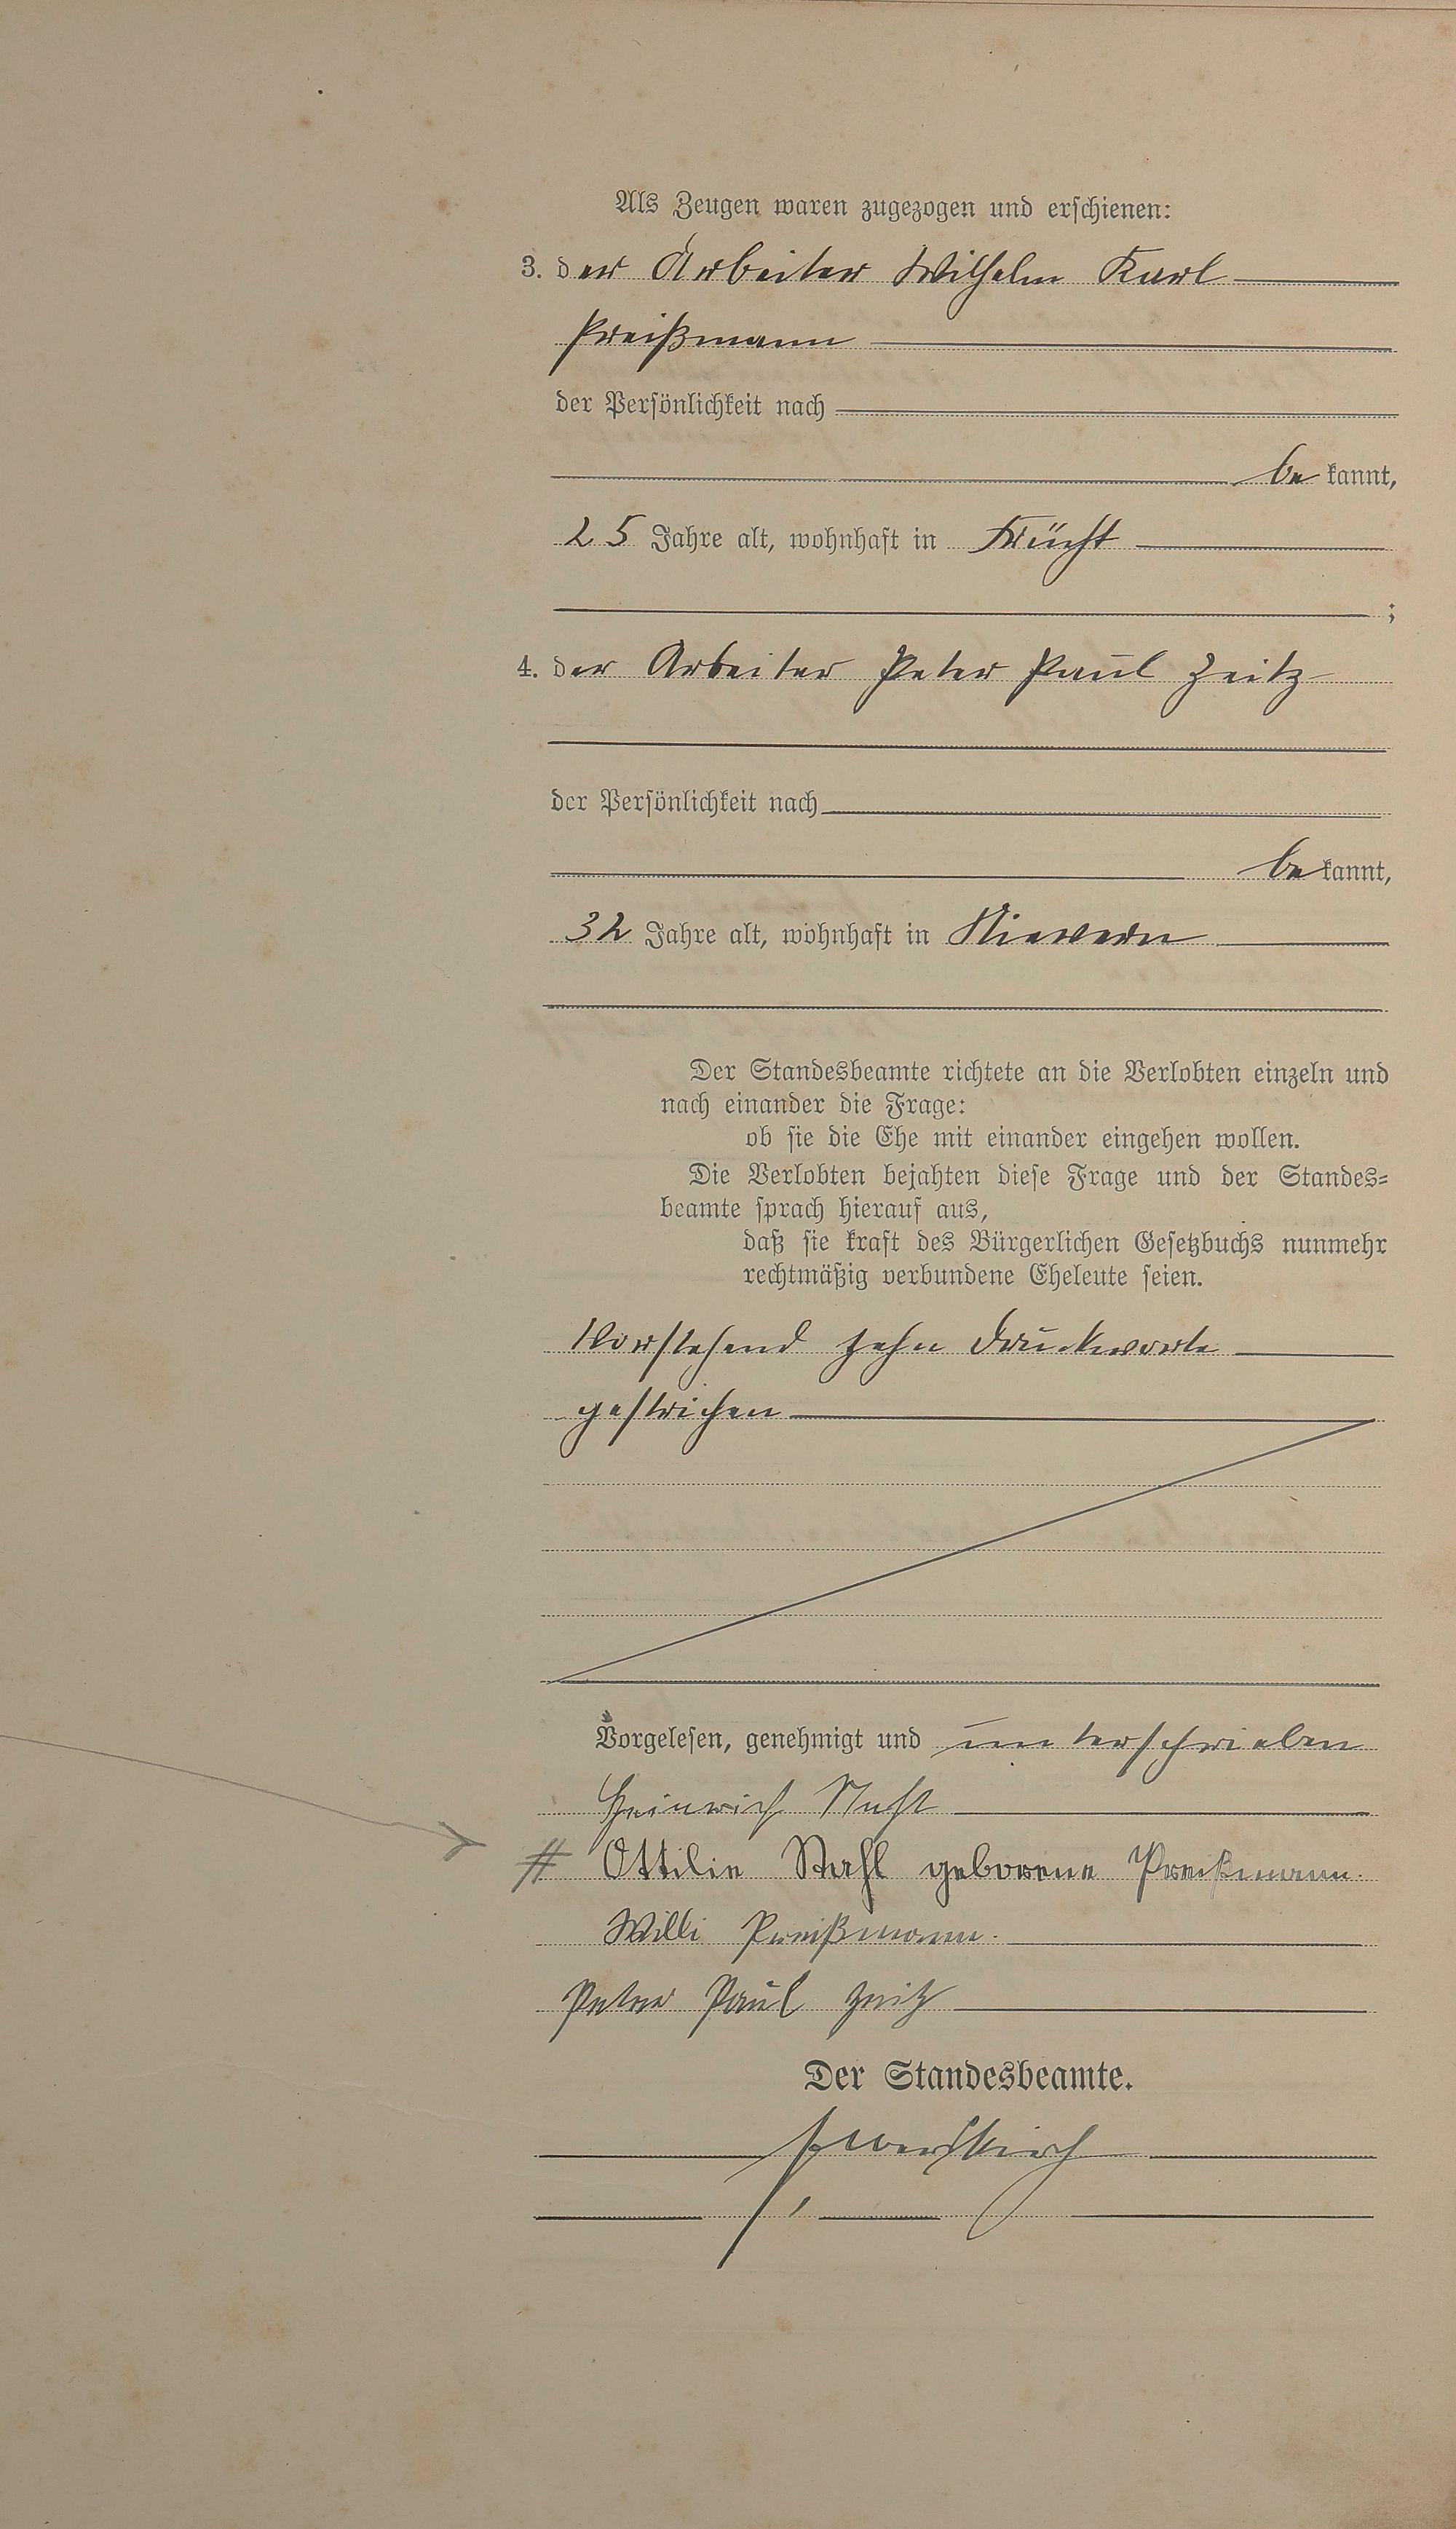 Als Zeugen waren zugezogen und erschienen:
3. der Arbeiter Wilhelm Karl
Preißmann
der Persönlichkeit nach
be kannt,
25 Jahre alt, wohnhaft in Frücht
;
4. der Arbeiter Peter Paul Zeitz
der Persönlichkeit nach
be kannt,
32 Jahre alt, wohnhaft in Nievern
Der Standesbeamte richtete an die Verlobten einzeln und
nach einander die Frage:
ob sie die Ehe mit einander eingehen wollen.
Die Verlobten bejahten diese Frage und der Standes-
beamte sprach hierauf aus,
daß sie kraft des Bürgerlichen Gesetzbuchs nunmehr
rechtmäßig verbundene Eheleute seien.
Vorstehend zehn Druckworte
gestrichen
Vorgelesen, genehmigt und unterschrieben
Heinrich Stahl
# Ottilie Stahl geborene Preißmann.
Willi Preißmann.
Peter Paul Zeitz
Der Standesbeamte.